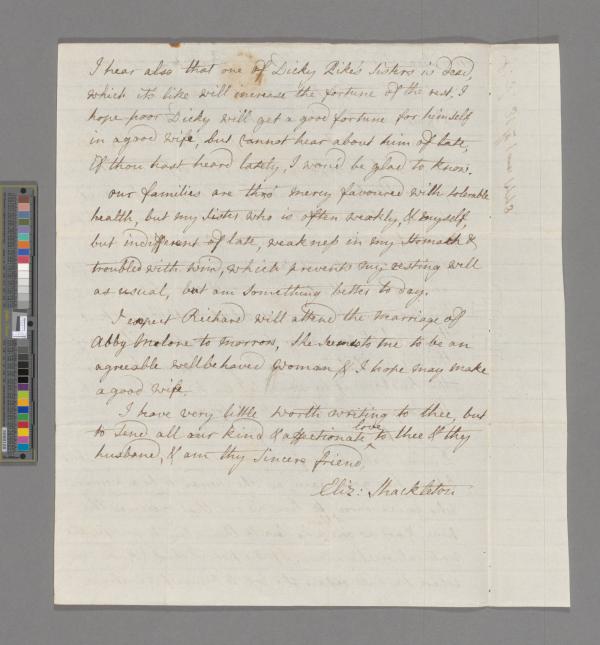 I hear also that one of Dicky Pike's Sisters is dead,
which its like will increase the fortune of the rest, I
hope poor Dicky will get a good fortune for himself
in a good wife, but cannot hear about him of late,
If thou hast heard lately, I woud be glad to know.
our families are thro' mercy favoured with tolerable
health, but my Sister who is often weakly, & myself,
but indifferent of late, weakness in my Stomach &
troubled with wind, which prevents my resting well
as usual, but am something better to day.
I expect Richard will attend the marriage of
Abby Molone to morrow, she seems to me to be an
agreeable wellbehaved woman, & I hope may make
a good wife.
I have very little worth writing to thee, but
to send all our kind & affectionate love to thee & thy
husband, & am thy Sincere friend,
Eliz: Shackleton